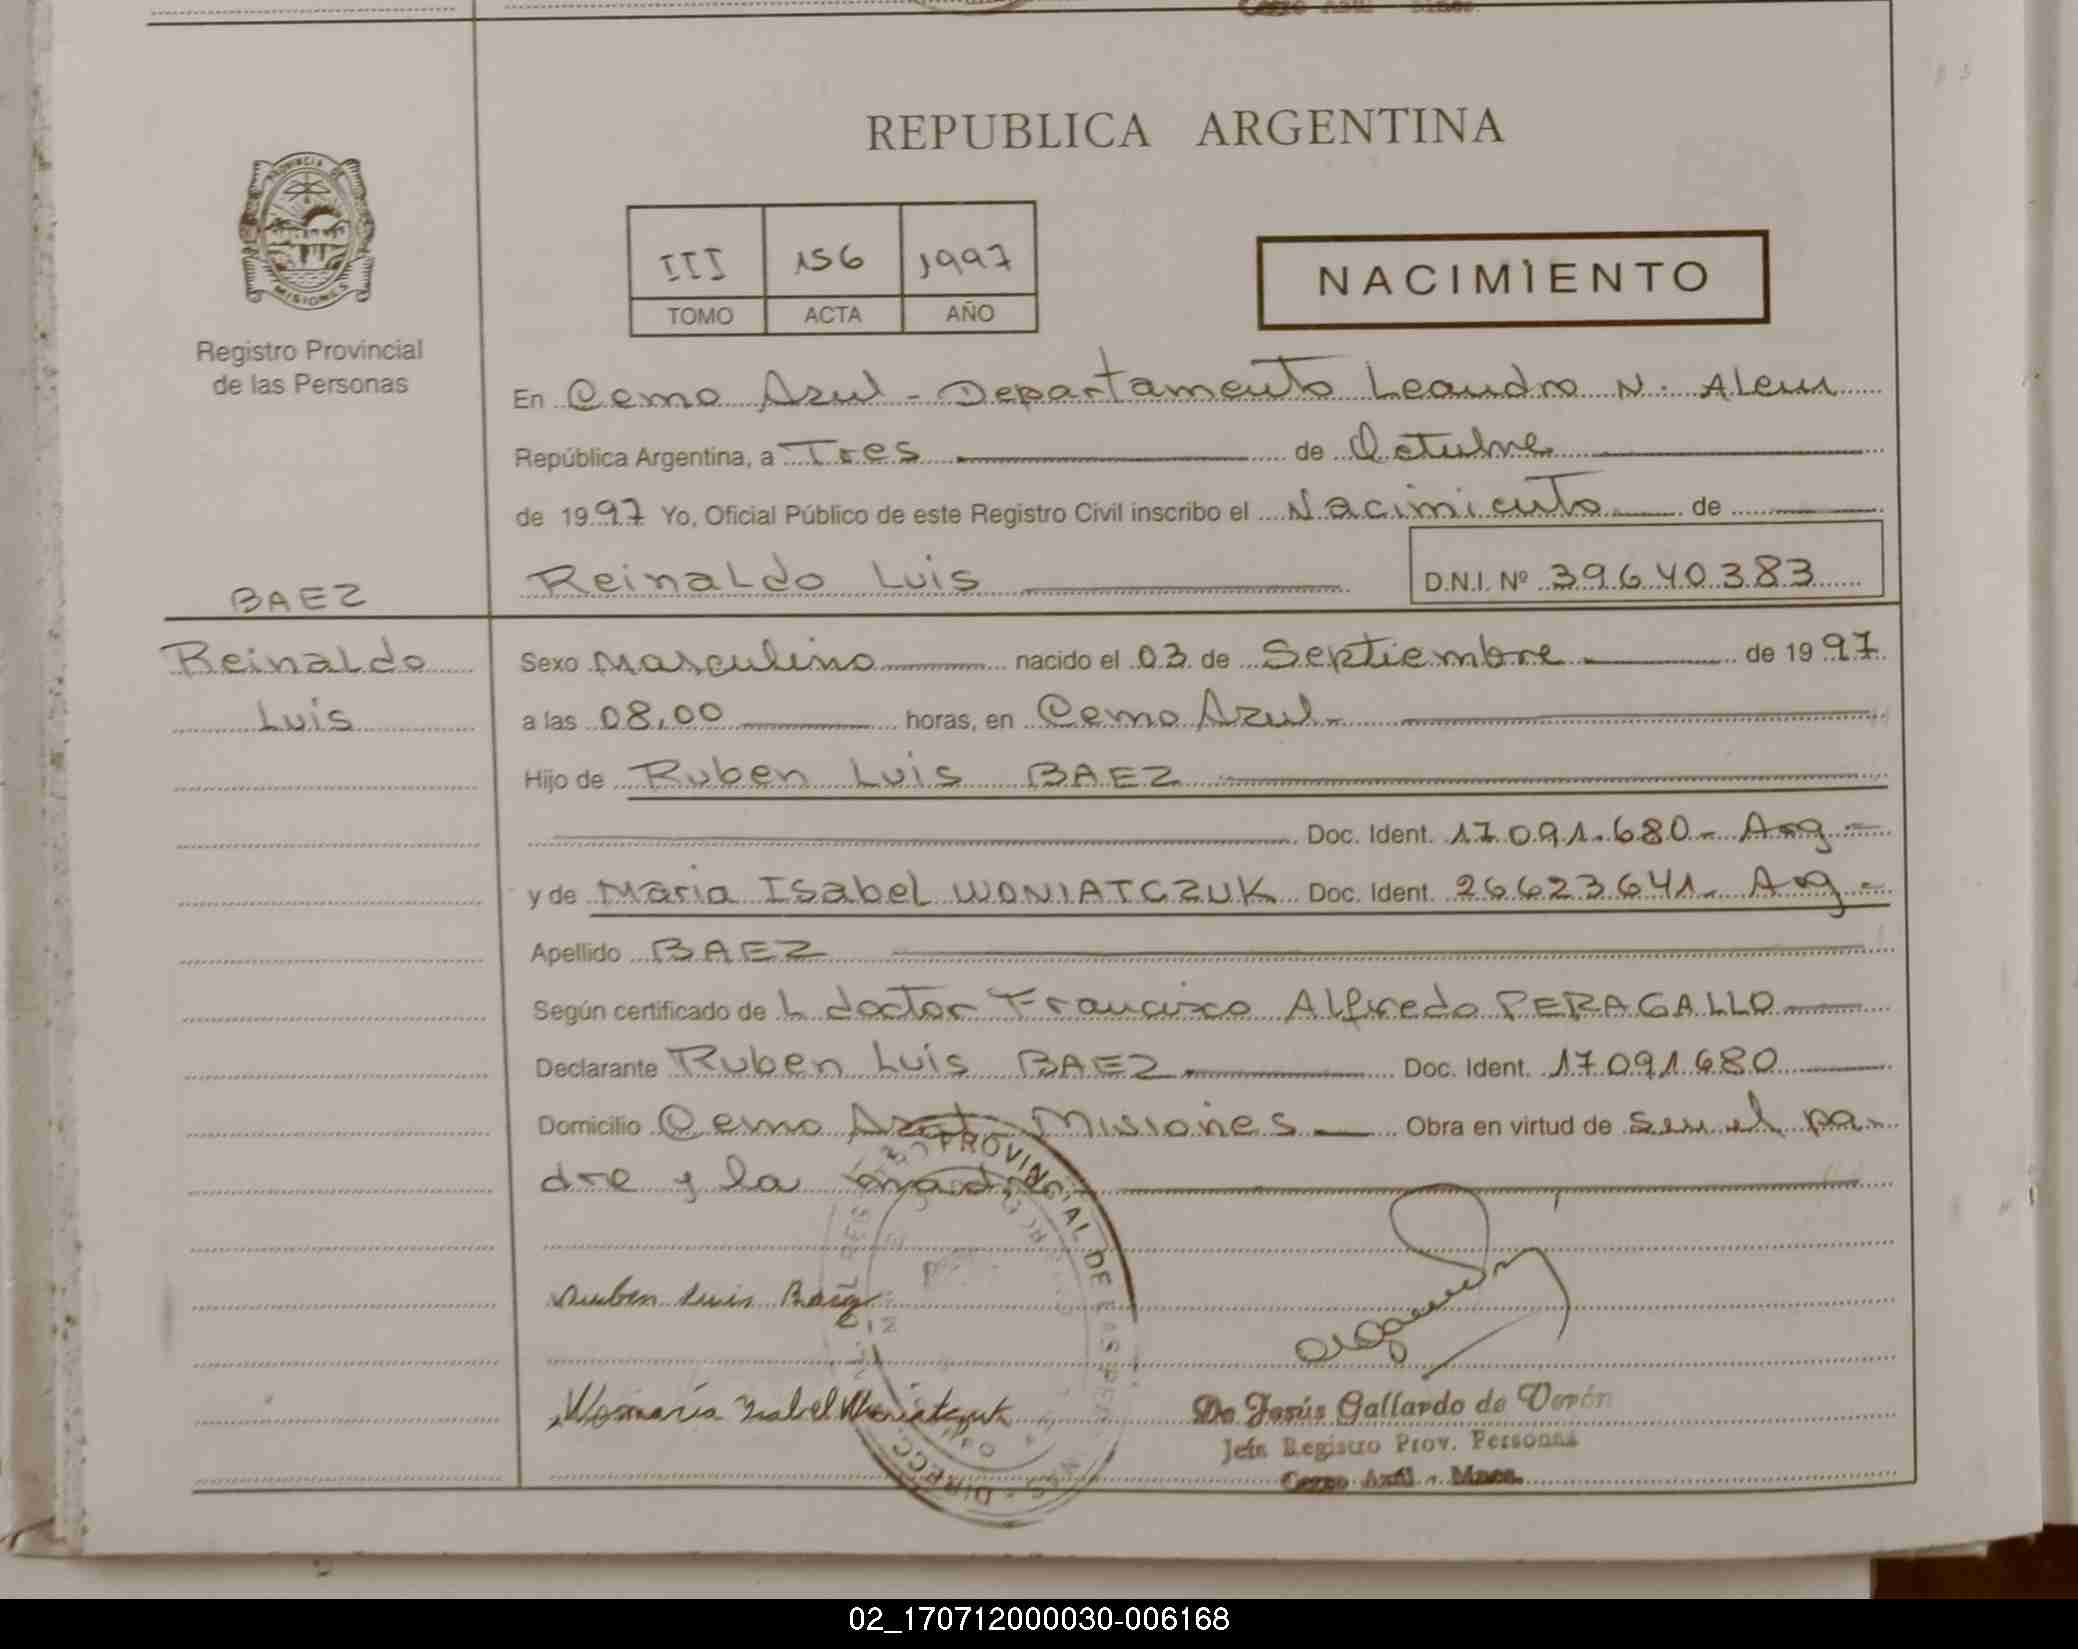 PROVINCIA DE
MISIONES
Registro Provincial
de las Personas
BAEZ
Reinaldo
Luis
REPUBLICA ARGENTINA
III 156 1997
TOMO ACTA AÑO
NACIMIENTO
En Cerro Azul - Departamento Leandro N. Alem
República Argentina, a Tres de Octubre
de 1997 Yo, Oficial Público de este Registro Civil inscribo el Nacimiento de
Reinaldo Luis D.N.I. Nº 39640383
Sexo Masculino nacido el 03 de Septiembre de 1997
a las 08,00 horas, en Cerro Azul-
Hijo de Ruben Luis BAEZ
Doc. Ident. 17.091.680- Arg-
y de Maria Isabel WONIATCZUK Doc. Ident. 26623641- Arg-
Apellido BAEZ
Según certificado de L doctor Francisco Alfredo PERAGALLO
Declarante Ruben Luis BAEZ Doc. Ident. 17091680
Domicilio Cerro Azul Misiones Obra en virtud de ser el pa-
dre y la madre
PROVINCIAL DE LAS PER
DIRECC
Ruben Luis Baez
María Isabel Woniatczuk
De Jesús Gallardo de Verón
Jefa Registro Prov. Personas
Cerro Azul - Mnes.
02_170712000030-006168